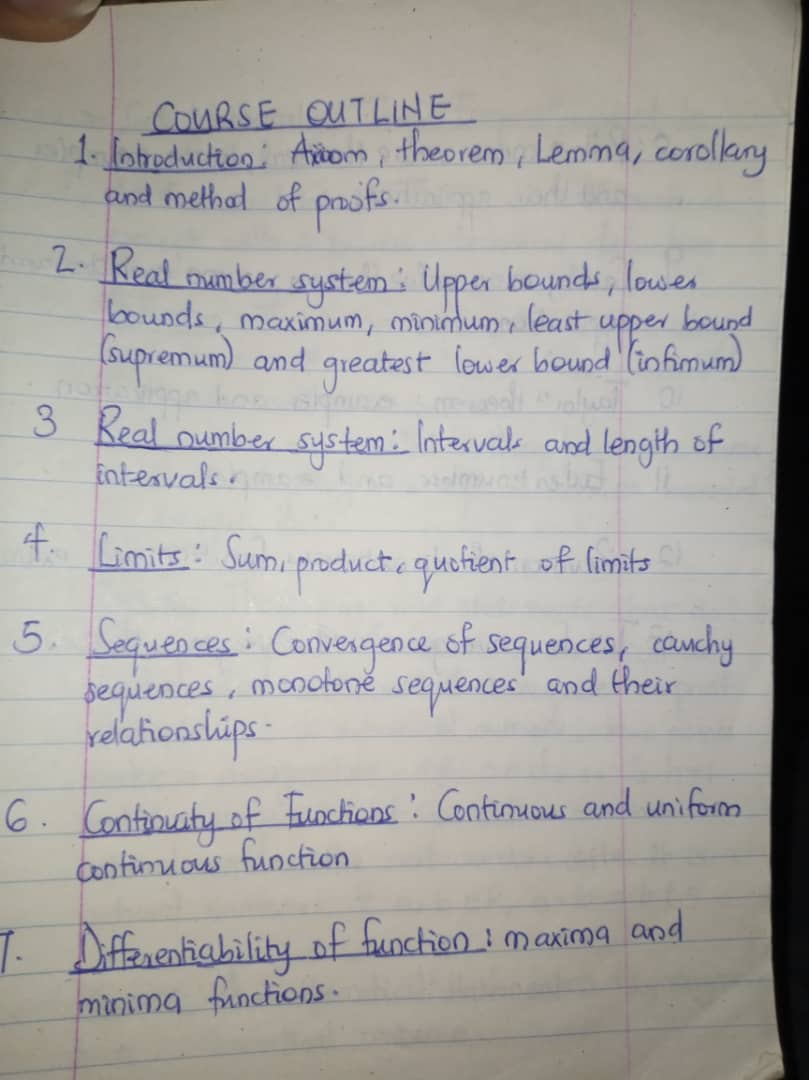 COURSE OUTLINE
1. Introduction: Axiom, theorem, Lemma, corollary
and method of proofs.
2. Real number system: Upper bounds, lower
bounds, maximum, minimum, least upper bound
(supremum) and greatest lower bound (infimum)
3 Real number system: Intervals and length of
intervals.
4. Limits: Sum, product, quotient of limits
5. Sequences: Convergence of sequences, cauchy
sequences, monotone sequences and their
relationships.
6. Continuity of Functions: Continuous and uniform
continuous function
7. Differentiability of function: maxima and
minima functions.